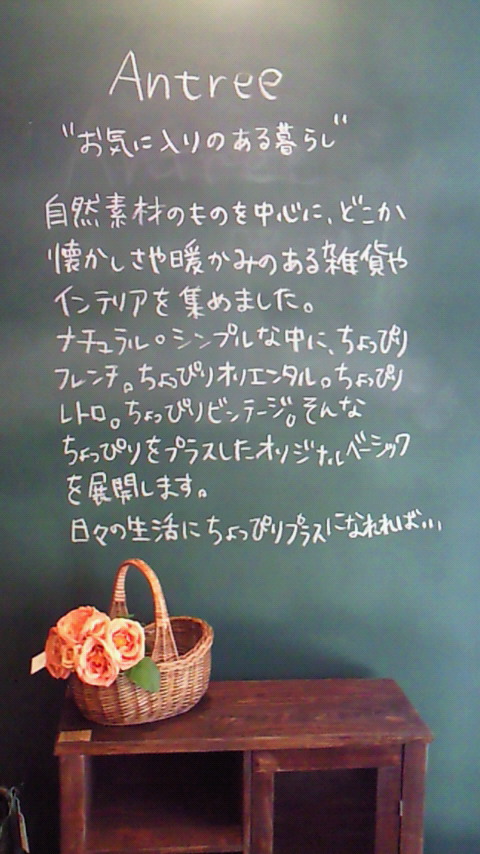 Antree
"お気に入りのある暮らし"
自然素材のものを中心に、どこか
懐かしさや暖かみのある雑貨や
インテリアを集めました。
ナチュラル。シンプルな中に、ちょっぴり
フレンチ。ちょっぴりオリエンタル。ちょっぴり
レトロ。ちょっぴりビンテージ。そんな
ちょっぴりをプラスしたオリジナルベーシック
を展開します。
日々の生活にちょっぴりプラスになれれば...